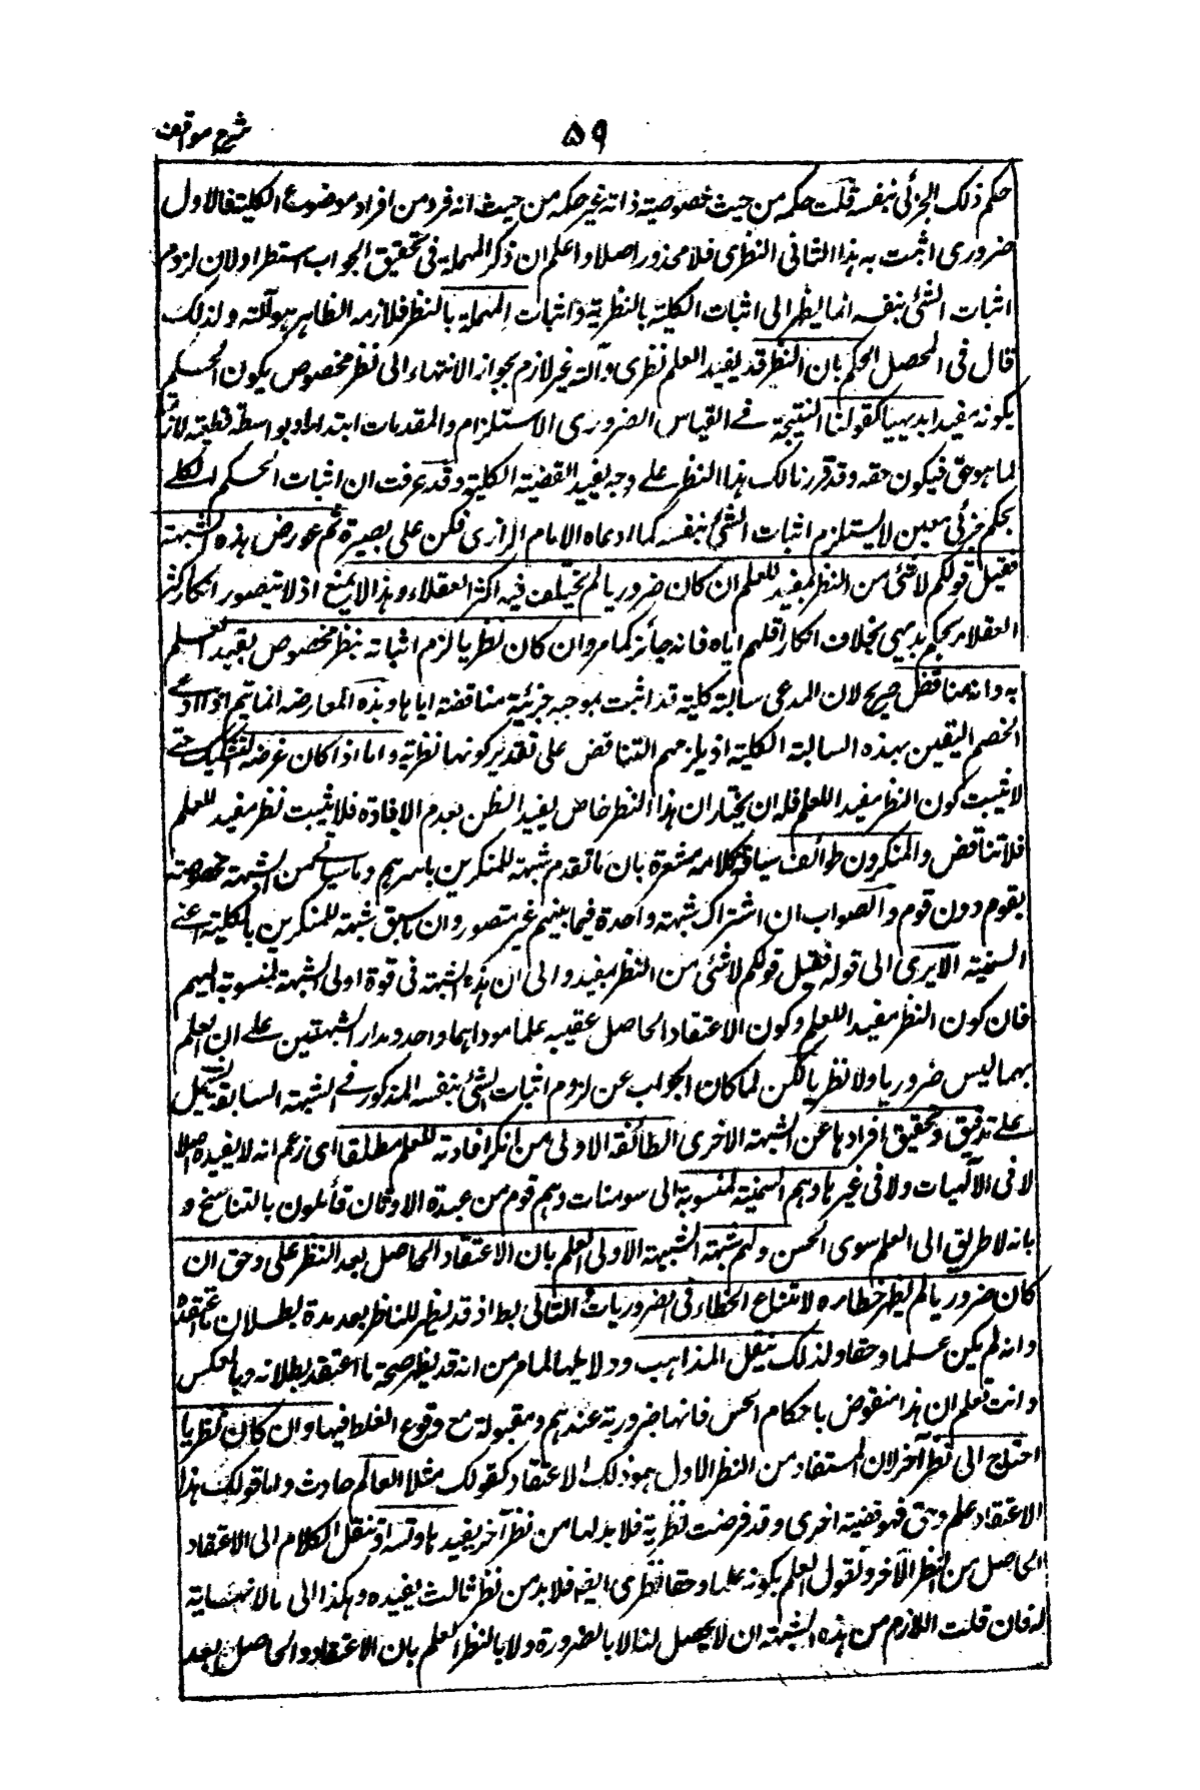 شرح مواقف
٥٩
حكم ذلك الجزئي بنفسه قلت حكمه من حيث خصوصية ذاته غير حكمه من حيث انه فرد من افراد موضوع الكلية فالاول
ضروري اثبت به هذا الثاني النظري فلا محذور اصلا واعلم ان ذكر المهملة في تحقيق الجواب استطراد لان لزوم
اثبات الشئ بنفسه انما يظهر الى اثبات الكلية بالنظرية واثبات المهملة بالنظر فلازمه الظاهر هو آلته ولذلك
قال في المحصل الحكم بان النظر قد يفيد العلم نظري وآلته غير لازم بجواز الانتهاء الى نظر مخصوص يكون الحكم
بكونه مفيدا بديهيا كقولنا النتيجة في القياس الضروري الاستلزام والمقدمات ابتداء او بواسطة قطعية لازمة
لما هو حق فيكون حقه وقد قررنا لك هذا النظر على وجه يفيد القضية الكلية وقد عرفت ان اثبات الحكم الكلي
بحكم جزئي معين لا يستلزم اثبات الشئ بنفسه كما ادعاه الامام الرازي فكن على بصيرة ثم عورض هذه الشبهة
فقيل قولكم لا شئ من النظر بمفيد للعلم ان كان ضروريا لم يختلف فيه اكثر العقلاء وهذا لا يمنع اذ لا يتصور انكار اكثر
العقلاء بحكم بديهي بخلاف انكار اقلهم اياه فانه جائز كما مر وان كان نظريا لزم اثباته بنظر مخصوص يفيد العلم
به وانه مناقض صريح لان المدعى سالبة كلية قد اثبت بموجبه جزئية مناقضة اياها وهذه المعارضه انما يتم اذا ادعى
الخصم اليقين بهذه السالبة الكلية اذ يلزمهم التناقض على تقدير كونها نظرية واما اذا كان غرضه التشكيك حتى
لا يثبت كون النظر مفيدا للعلم فله ان يختار ان هذا النظر خاص يفيد الظن بعدم الافادة فلا يثبت نظر مفيد للعلم
فلا تناقض والمنكرون طوائف سياق كلامه مشعرة بان ما تقدم شبهة للمنكرين باسرهم وما سيأتي من الشبهة مخصوصة
بقوم دون قوم والصواب ان اشتراك شبهة واحدة فيما بينهم غير متصور وان ما سبق شبهة للمنكرين بالكلية اعني
السمنية الا يرى الى قوله فقيل قولكم لا شئ من النظر بمفيد والى ان هذه الشبهة في قوة اولى الشبهة المنسوبة اليهم
فان كون النظر مفيدا للعلم وكون الاعتقاد الحاصل عقيبه علما موداهما واحد ومدار الشبهتين على ان العلم
بهما ليس ضروريا ولا نظريا لكن لما كان الجواب عن لزوم اثبات الشئ بنفسه المذكور في الشبهة السابقة يشتمل
على تدقيق وتحقيق افرادها عن الشبهة الاخرى الطائفة الاولى من انكر افادته للعلم مطلقا اى زعم انه لا يفيده اصلا
لا في الآلهيات ولا في غيرها وهم السمنية المنسوبة الى سومنات وهم قوم من عبدة الاوثان قائلون بالتناسخ و
بانه لا طريق الى العلم سوى الحس ولهم شبهة الشبهة الاولى العلم بان الاعتقاد الحاصل بعد النظر علم وحق ان
كان ضروريا لم يظهر خطاءه لامتناع الخطاء في الضروريات التالي بط اذ قد يظهر للناظر بعد مدة بطلان ما اعتقده
وانه لم يكن علما وحقا ولذلك ينقل المذاهب ودلايلها لما مر من انه قد يظهر صحة ما اعتقد بطلانه وبالعكس
وانت تعلم ان هذا منقوض باحكام الحس فانها ضرورية عندهم ومقبولة مع وقوع الغلط فيها وان كان نظريا
احتاج الى نظر آخر لان المستفاد من النظر الاول هو ذلك الاعتقاد كقولك مثلا العالم حادث واما قولك هذا
الاعتقاد علم وحق فهو قضية اخرى وقد فرضت نظرية فلا بد لها من نظر آخر يفيدها وتسلسل وننقل الكلام الى الاعتقاد
الحاصل من النظر الآخر ونقول العلم بكونه علما وحقا نظري ايضه فلا بد من نظر ثالث يفيده وهكذا الى مالا نهاية
له فان قلت اللازم من هذه الشبهة ان لا يحصل لنا لا بالضرورة ولا بالنظر العلم بان الاعتقاد والحاصل بعد